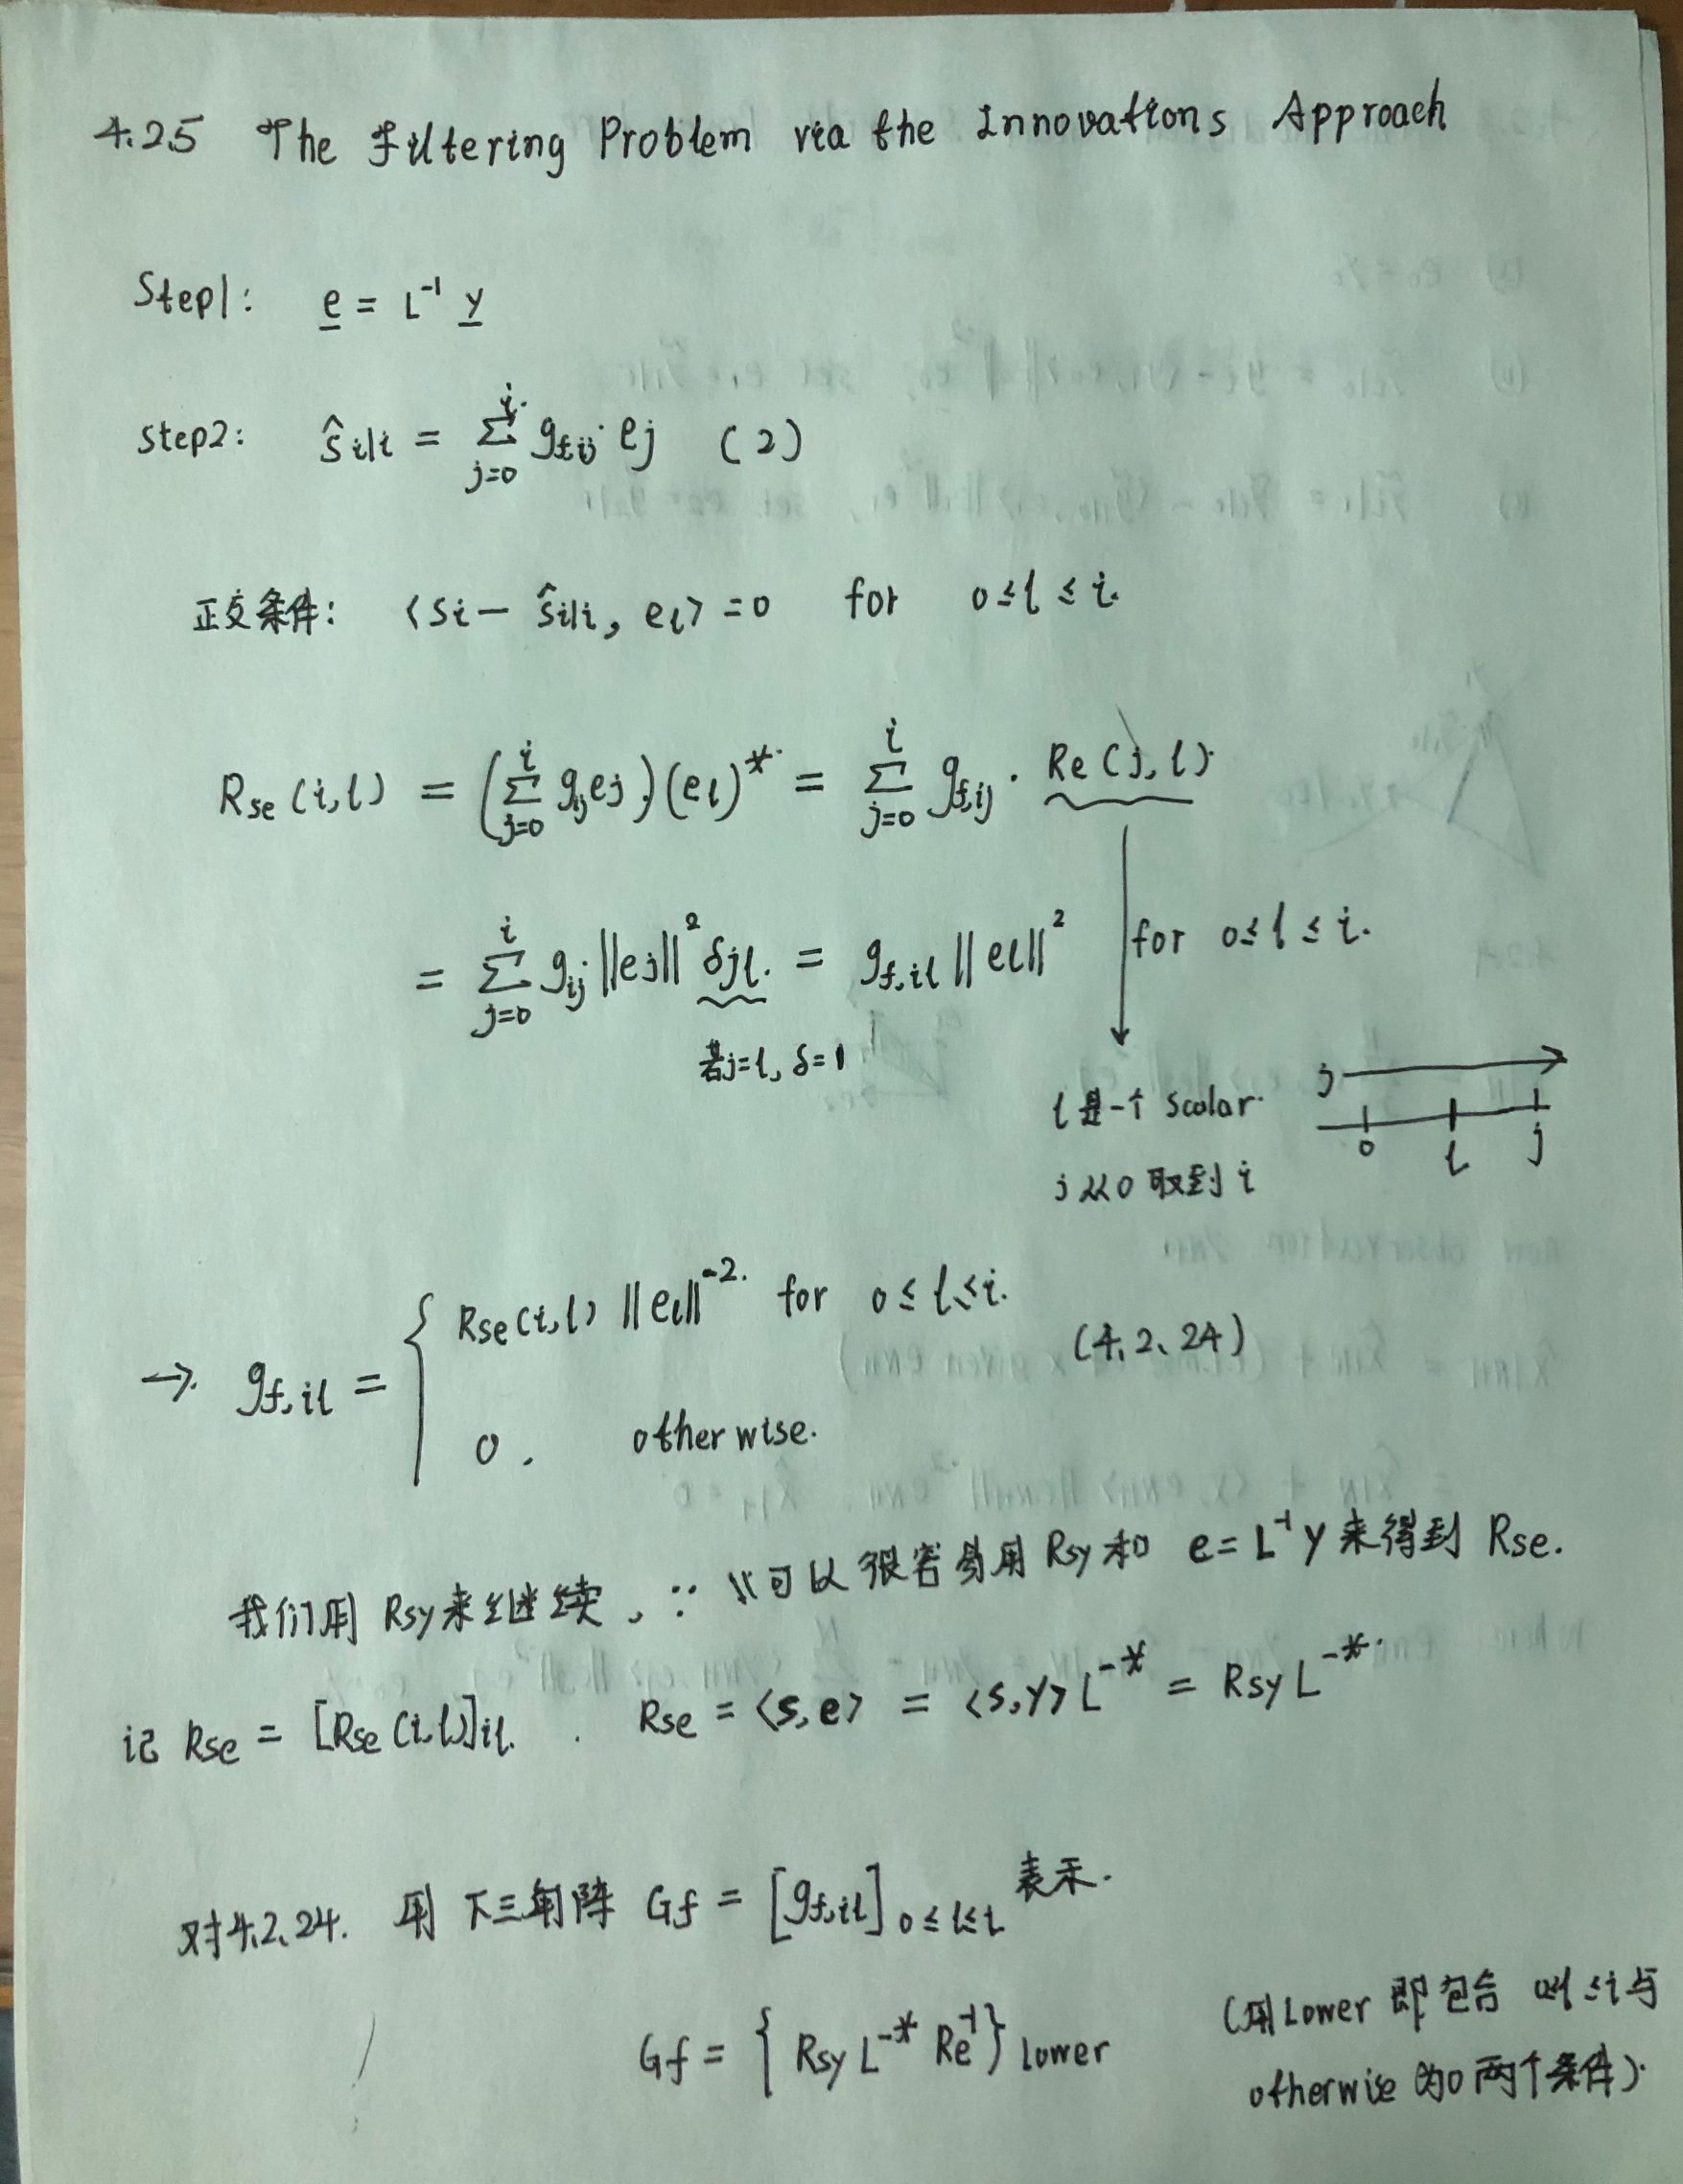 4.2.5 The Filtering Problem via the Innovations Approach
Step1: e = L⁻¹ y
Step2: ŝi|i = Σ_{j=0}^{i} gf,ij ej (2)
正交条件: ⟨si − ŝi|i, el⟩ = 0 for 0 ≤ l ≤ i.
Rse(i,l) = (Σ_{j=0}^{i} gij ej)(el)* = Σ_{j=0}^{i} gf,ij · Re(j,l)
= Σ_{j=0}^{i} gij ||ej||² δjl. = gf,il ||el||² for 0 ≤ l ≤ i.
若j=l, δ=1
l 是一个 scalar
j 从0 取到 i
j
0 l j
→ gf,il = { Rse(i,l) ||el||⁻² for 0 ≤ l ≤ i.
(4.2.24)
0. otherwise.
我们用 Rsy来继续, ∵ 可以很容易用 Rsy和 e = L⁻¹ y 来得到 Rse.
记 Rse = [Rse(i,l)]il. Rse = ⟨s, e⟩ = ⟨s, y⟩ L⁻* = Rsy L⁻*
对4.2.24. 用 下三角阵 Gf = [gf,il] 0≤l≤i 表示.
Gf = { Rsy L⁻* Re⁻¹ } lower
(用Lower 即包含 0≤l≤i与
otherwise 为0 两个条件).